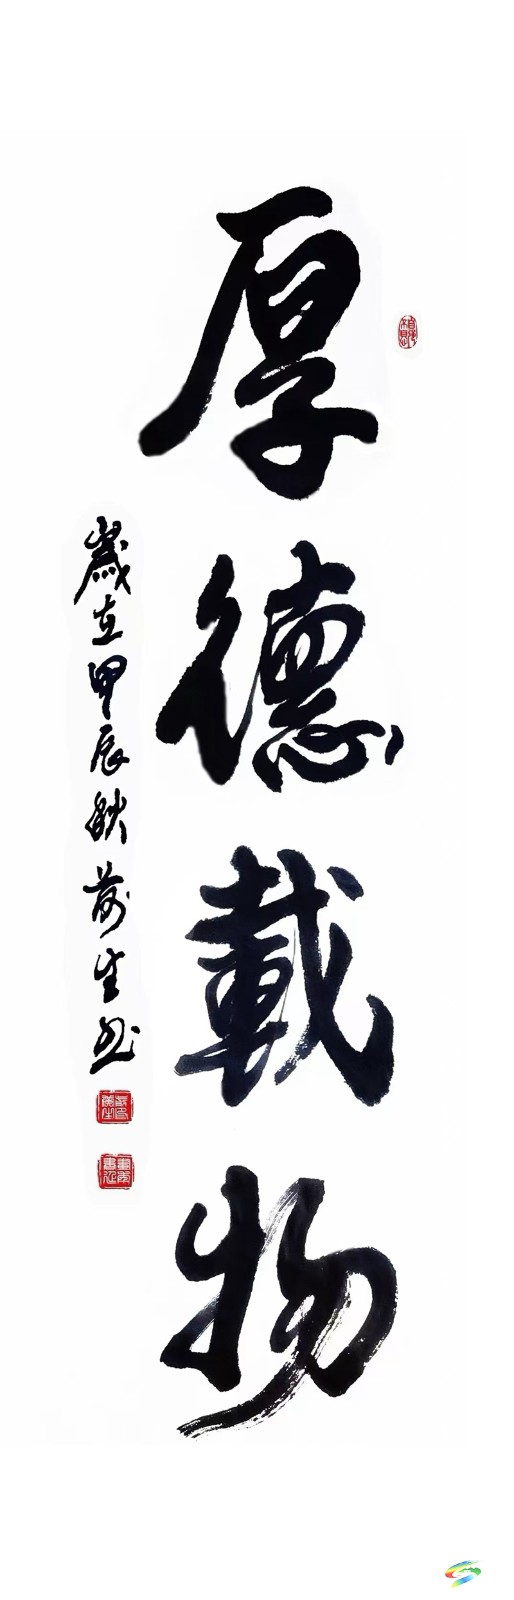 厚德載物
歲在甲辰秋前生书